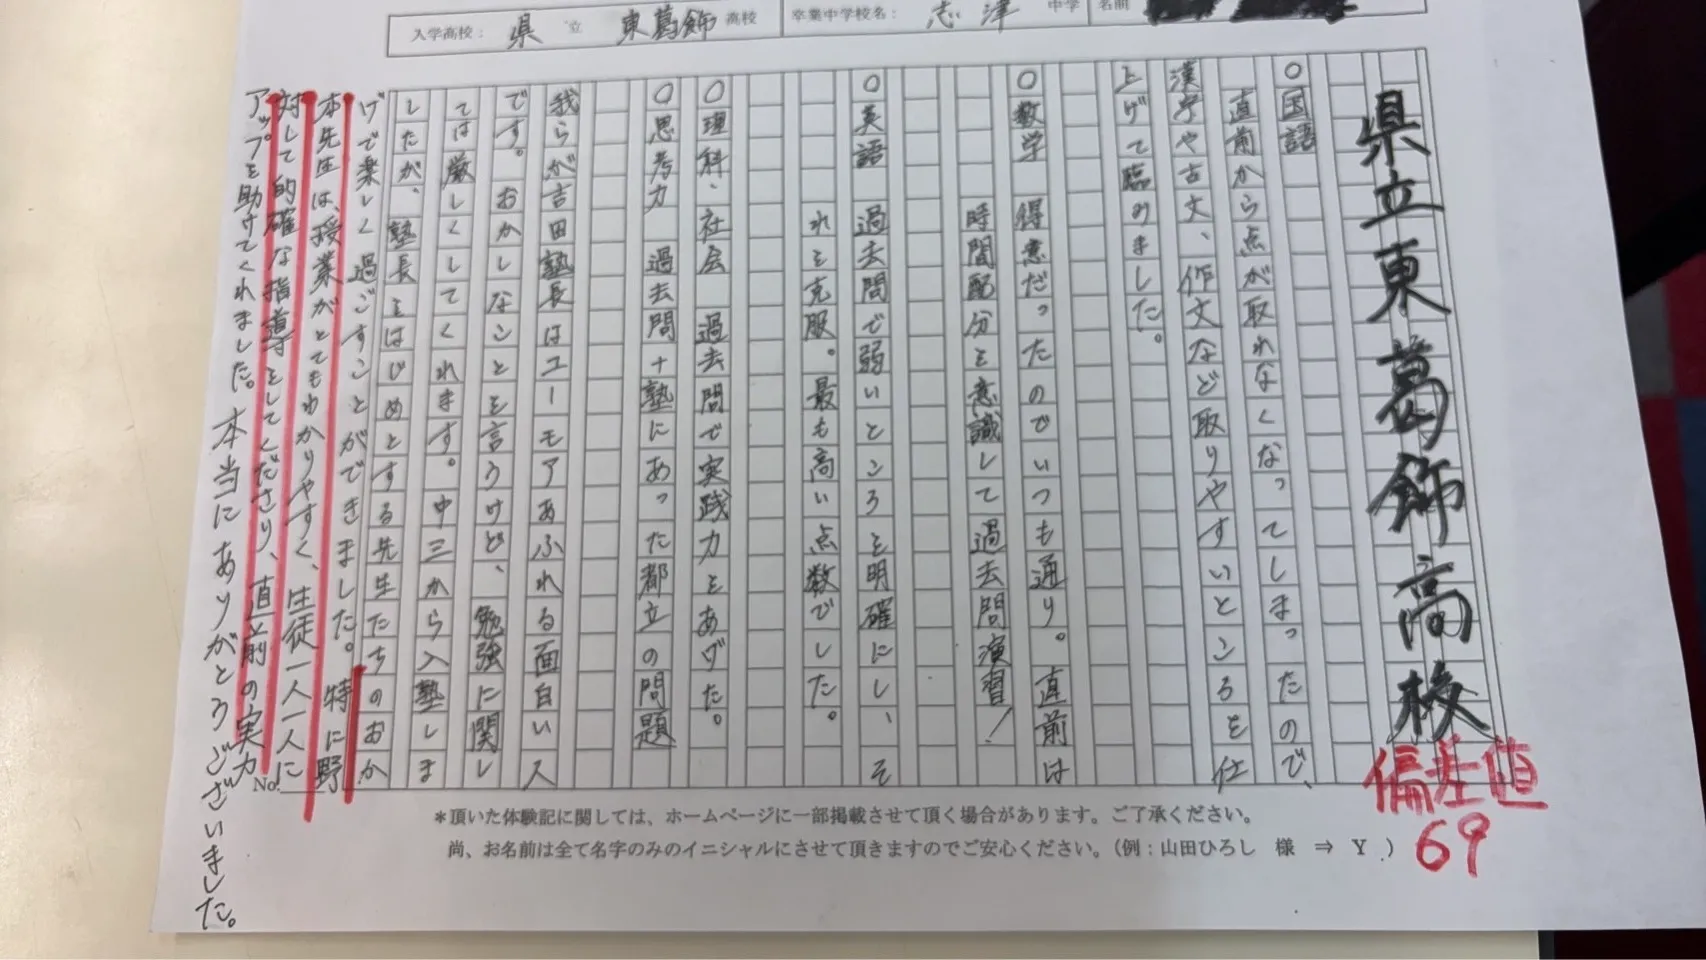 入学高校： 県 立 東葛飾 高校 卒業中学校名： 志津 中学 名前
県立東葛飾高校
偏差値
69
〇国語
直前から点が取れなくなってしまったので、
漢字や古文、作文など取りやすいところを仕
上げて臨みました。
〇数学 得意だったのでいつも通り。直前は
時間配分を意識して過去問演習！
〇英語 過去問で弱いところを明確にし、そ
れを克服。最も高い点数でした。
〇理科、社会 過去問で実践力をあげた。
〇思考力 過去問＋塾にあった都立の問題
我らが吉田塾長はユーモアあふれる面白い人
です。おかしなことを言うけど、勉強に関し
ては厳しくしてくれます。中三から入塾しま
したが、塾長をはじめとする先生たちのおか
げで楽しく過ごすことができました。特に野
本先生は、授業がとてもわかりやすく、生徒一人一人に
対して的確な指導をしてくださり、直前の実力
アップを助けてくれました。本当にありがとうございました。
No.
＊頂いた体験記に関しては、ホームページに一部掲載させて頂く場合があります。ご了承ください。
尚、お名前は全て名字のみのイニシャルにさせて頂きますのでご安心ください。（例：山田ひろし 様 ⇒ Y .）